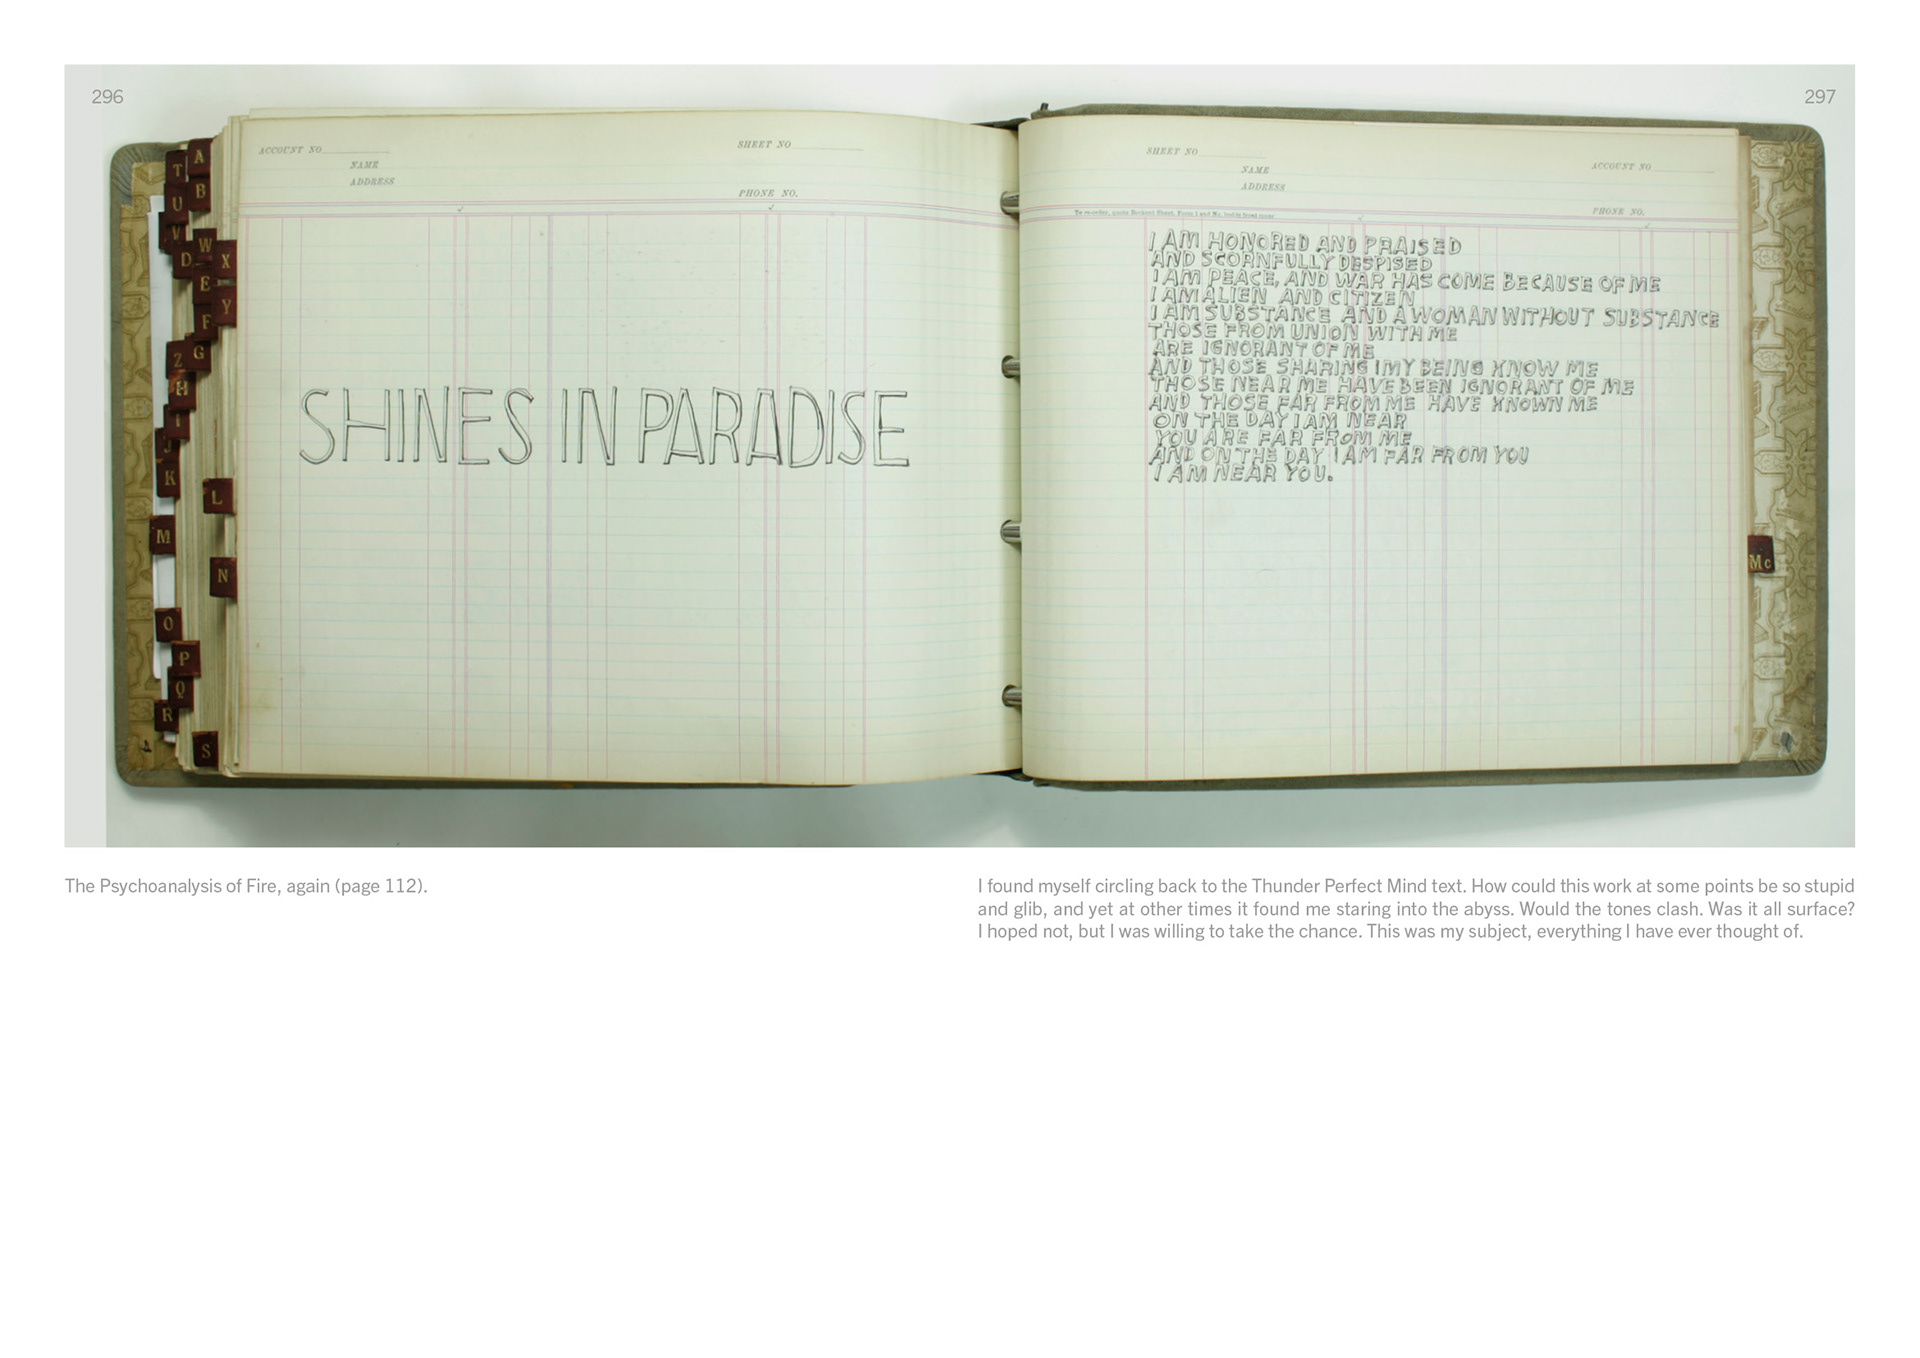 296
297
ACCOUNT NO
SHEET NO
NAME
ADDRESS
PHONE NO.
SHINES IN PARADISE
A
T
B
U
V
W
D
X
E
Y
F
G
Z
H
I
J
K
L
M
N
O
P
Q
R
S
SHEET NO
ACCOUNT NO
NAME
ADDRESS
PHONE NO.
I AM HONORED AND PRAISED
AND SCORNFULLY DESPISED
I AM PEACE, AND WAR HAS COME BECAUSE OF ME
I AM ALIEN AND CITIZEN
I AM SUBSTANCE AND A WOMAN WITHOUT SUBSTANCE
THOSE FROM UNION WITH ME
ARE IGNORANT OF ME
AND THOSE SHARING IMY BEING KNOW ME
THOSE NEAR ME HAVE BEEN IGNORANT OF ME
AND THOSE FAR FROM ME HAVE KNOWN ME
ON THE DAY I AM NEAR
YOU ARE FAR FROM ME
AND ON THE DAY I AM FAR FROM YOU
I AM NEAR YOU.
Mc
The Psychoanalysis of Fire, again (page 112).
I found myself circling back to the Thunder Perfect Mind text. How could this work at some points be so stupid
and glib, and yet at other times it found me staring into the abyss. Would the tones clash. Was it all surface?
I hoped not, but I was willing to take the chance. This was my subject, everything I have ever thought of.